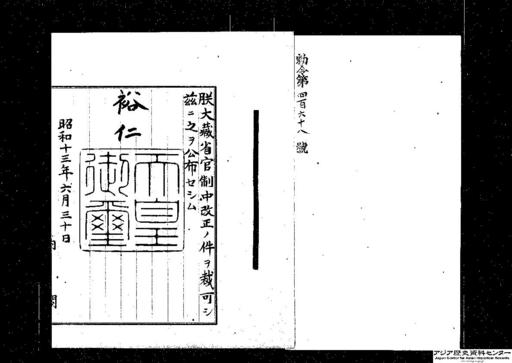 勅令第四百六十八號
朕大藏省官制中改正ノ件ヲ裁可シ
茲ニ之ヲ公布セシム
裕仁
天皇
御璽
昭和十三年六月三十日
内閣
アジア歴史資料センター
Japan Center for Asian Historical Records